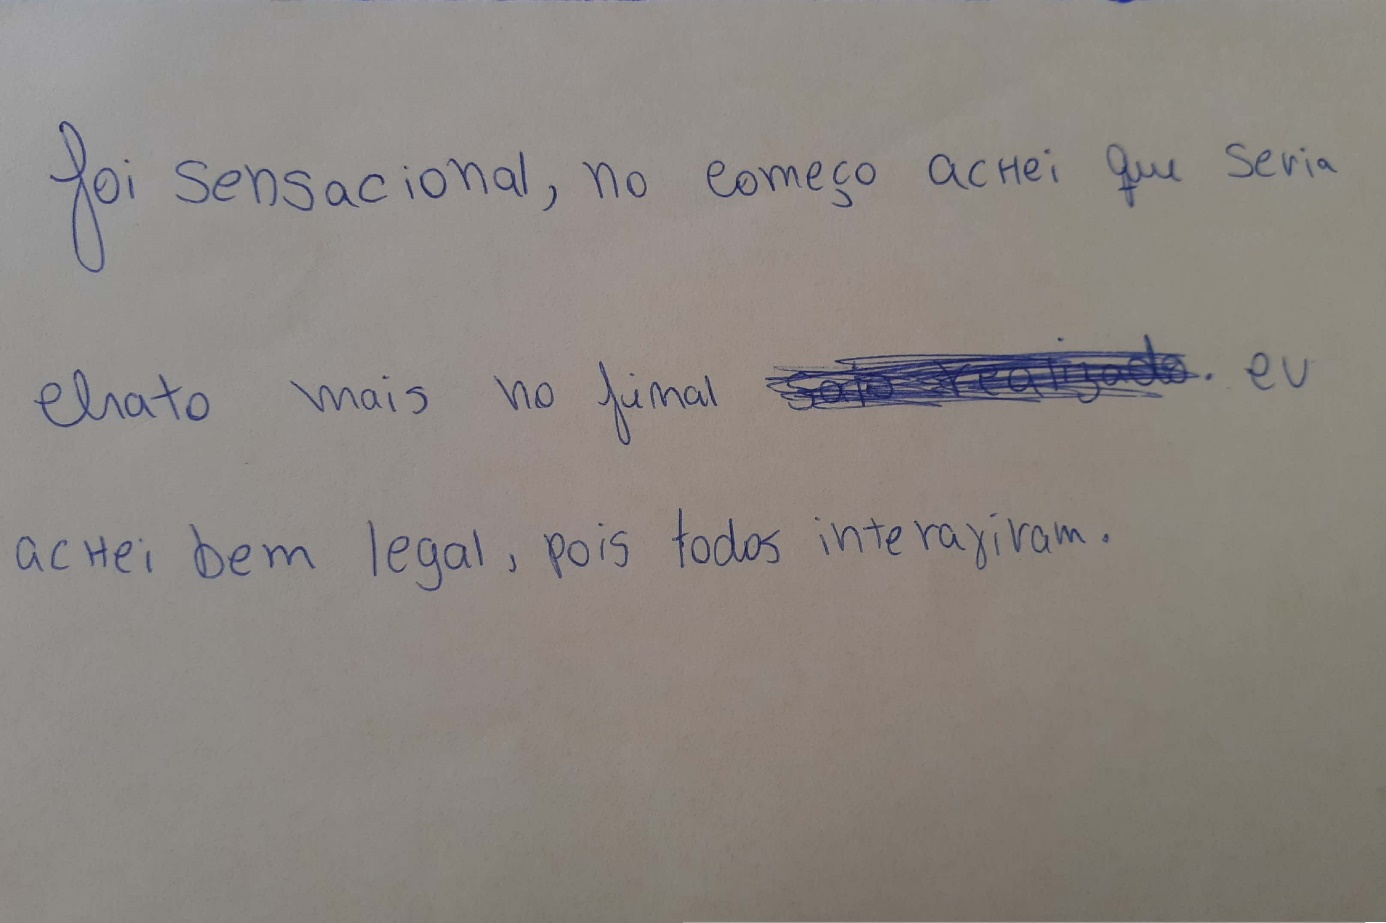 foi sensacional, no começo achei que seria
chato mais no final . eu
achei bem legal, pois todos interagiram.